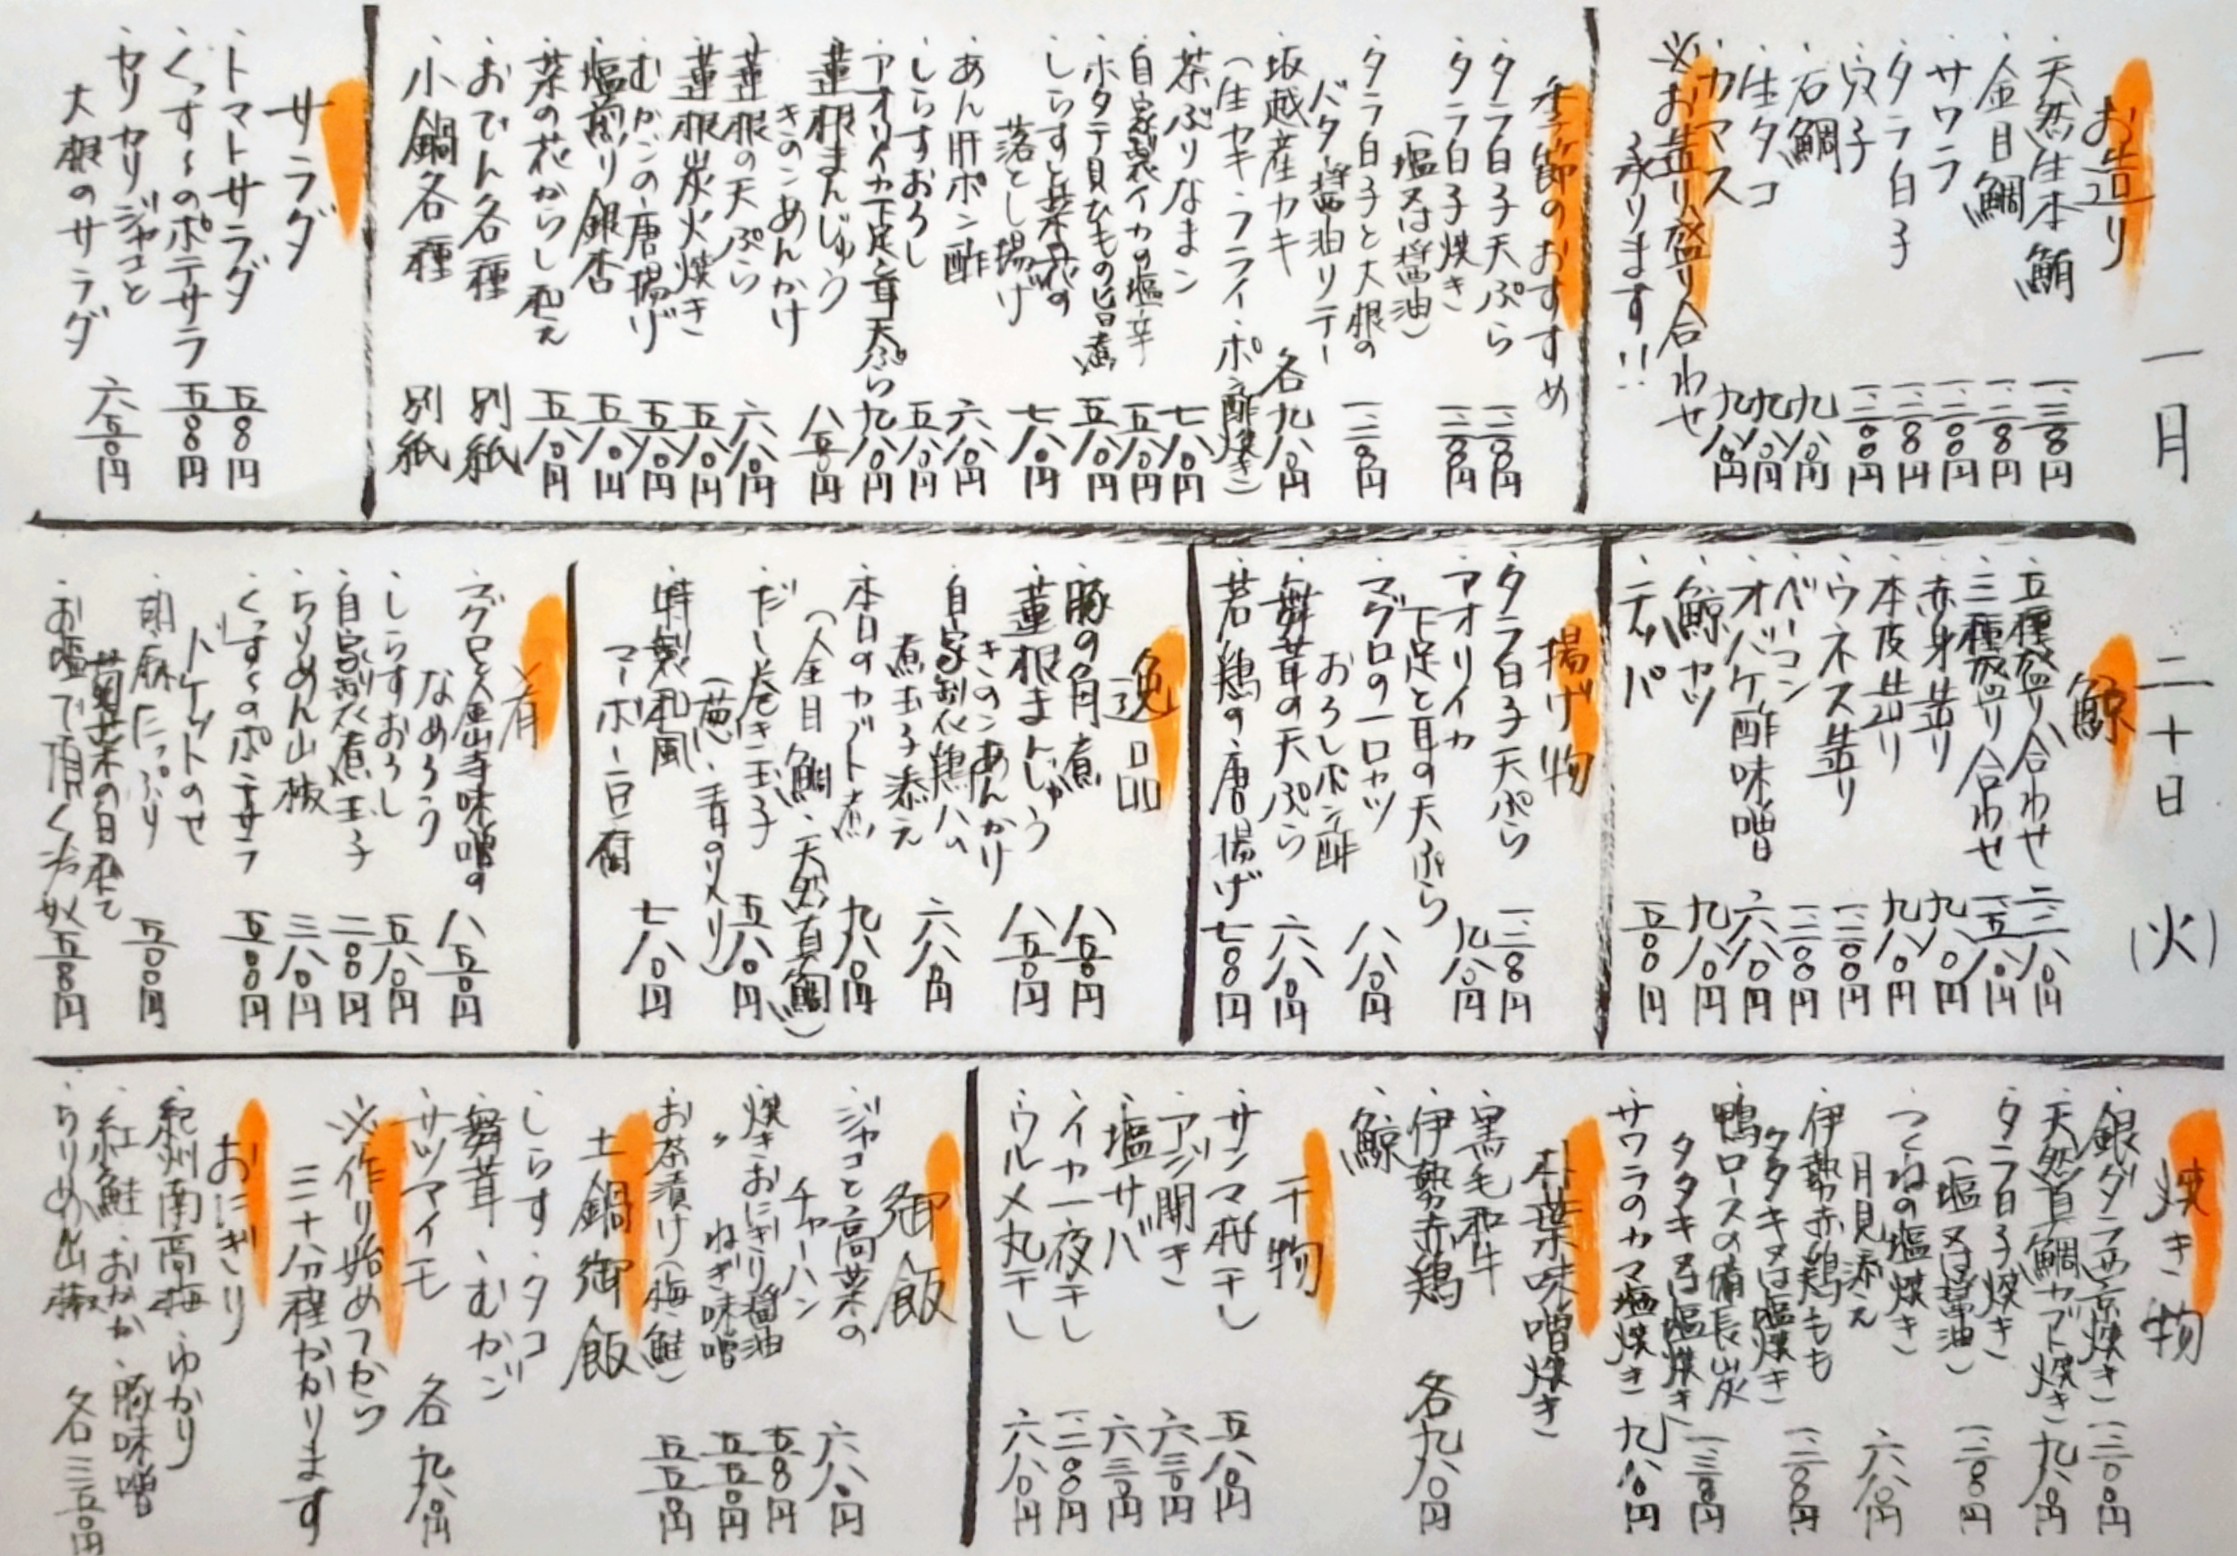 一月二十日(火)
お造り
・天然生本鮪
・金目鯛
・サワラ 一、二〇〇円
・タラ白子
・穴子
・石鯛 九八〇円
・生タコ 九八〇円
・カマス 九八〇円
※お造り盛り合わせ
承ります!!
季節のおすすめ
・タラ白子天ぷら
・タラ白子焼き
(塩又は醤油)
・タラ白子と大根の
バター醤油ソテー
・坂越産カキ 各九八〇円
(生カキ・フライ・ポン酢焼き)
・茶ぶりなまこ 七八〇円
・自家製イカの塩辛 五八〇円
・ホタテ貝ひもの旨煮 五八〇円
・しらすと菜の花の
落とし揚げ 七八〇円
・あん肝ポン酢 六八〇円
・しらすおろし 五八〇円
・アオリイカ下足と耳天ぷら 九八〇円
・蓮根まんじゅう
きのこあんかけ 八五〇円
・蓮根の天ぷら 六八〇円
・蓮根炭火焼き 五八〇円
・むかごの唐揚げ 五八〇円
・塩煎り銀杏 五八〇円
・菜の花からし和え 五八〇円
・おでん各種 別紙
・小鍋各種 別紙
サラダ
・トマトサラダ 五〇〇円
・くっす〜のポテサラ 五〇〇円
・カリカリジャコと
大根のサラダ 六五〇円
鯨
・五種盛り合わせ 二、三八〇円
・三種盛り合わせ 一、五八〇円
・赤身造り 九八〇円
・本皮造り 九八〇円
・ウネス造り
・ベーコン
・オバケ酢味噌 六八〇円
・鯨カツ 九八〇円
・テッパ 五〇〇円
揚げ物
・タラ白子天ぷら
・アオリイカ
下足と耳の天ぷら 九八〇円
・マグロの一口カツ
おろしポン酢 八八〇円
・舞茸の天ぷら 六八〇円
・若鶏の唐揚げ 七〇〇円
逸品
・豚の角煮 八五〇円
・蓮根まんじゅう
きのこあんかけ 八五〇円
・自家製鶏ハム
煮玉子添え 六八〇円
・本日のカブト煮 九八〇円
(金目鯛、天然真鯛)
・だし巻き玉子 五八〇円
(葱、青のり入り)
・特製和風
マーボー豆腐 七八〇円
肴
・マグロと金山寺味噌の
なめろう 八五〇円
・しらすおろし 五八〇円
・自家製煮玉子 二〇〇円
・ちりめん山椒 三八〇円
・くっす〜のポテサラ
バゲットのせ 五〇〇円
・胡麻たっぷり
菊菜の白和え 五〇〇円
・お塩で頂く冷奴 五〇〇円
焼き物
・銀ダラ西京焼き
・天然真鯛カブト焼き 九八〇円
・タラ白子焼き
(塩又は醤油)
・つくねの塩焼き
月見添え 六八〇円
・伊勢赤鶏もも
タタキ又は塩焼き
・鴨ロースの備長炭
タタキ又は塩焼き
・サワラのカマ塩焼き 九八〇円
朴葉味噌焼き
・黒毛和牛
・伊勢赤鶏 各九八〇円
・鯨
干物
・サンマ桜干し 五八〇円
・アジ開き 六三〇円
・塩サバ 六三〇円
・イカ一夜干し
・ウルメ丸干し 六八〇円
御飯
・ジャコと高菜の
チャーハン 六八〇円
・焼きおにぎり醤油 五〇〇円
・〃 ねぎ味噌 五五〇円
・お茶漬け(梅、鮭) 五五〇円
土鍋御飯
・しらす・タコ
・舞茸・むかご
・サツマイモ 各九八〇円
※作り始めてから
三十分程かかります
おにぎり
・紀州南高梅・ゆかり
・紅鮭・おかか・豚味噌
・ちりめん山椒 各三五〇円